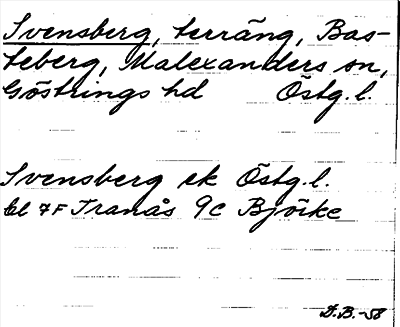 Svensberg, terräng, Bas-
teberg, Malexanders sn,
Göstrings hd Östg.l.
Svensberg ek Östg.l.
bl 7F Tranås 9c Björke
D.B.-58